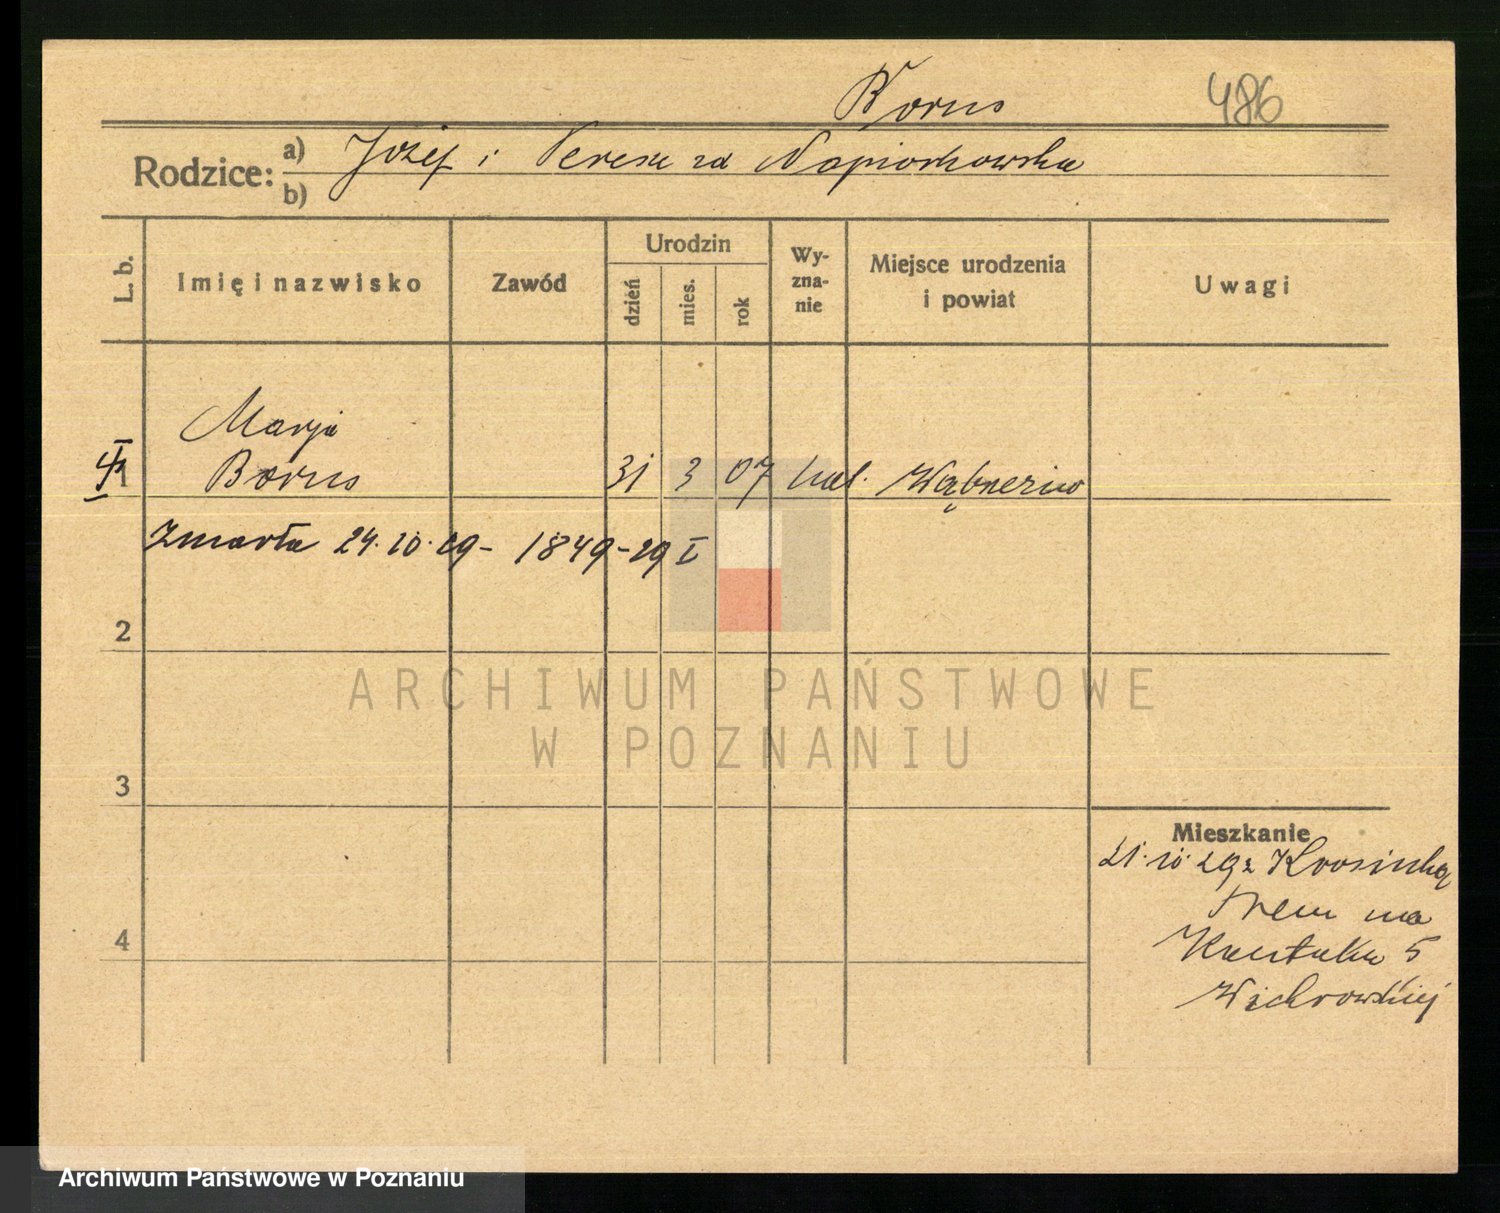 Borus 486
Rodzice: a) Józef i Teresa zd Napiorkowska
b)
L. b. Imię i nazwisko Zawód Urodzin dzień mies. rok Wy-zna-nie Miejsce urodzenia i powiat Uwagi
Marja
1 Borus 31 3 07 kat. Wąbrzeźno
Zmarła 24.10.29 - 1849-29 I
2
ARCHIWUM PAŃSTWOWE
W POZNANIU
3
Mieszkanie
21.10.29 z
4
5
Wichrowskiej
Archiwum Państwowe w Poznaniu